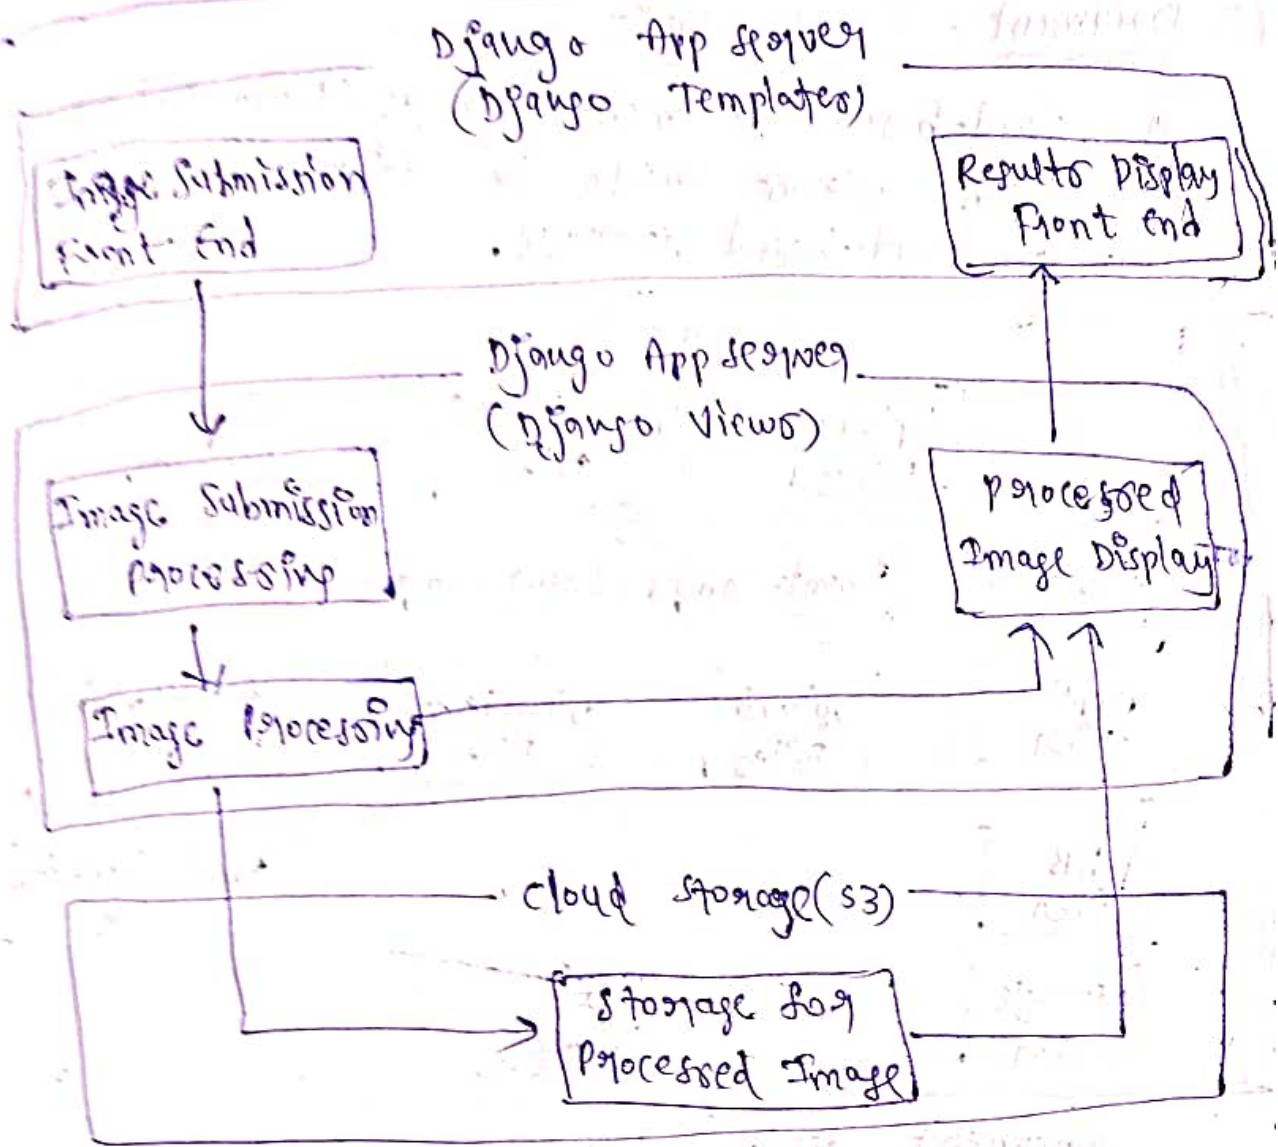 Django App server
(Django Templates)
Image Submission
Front End
Results Display
Front End
Django App server
(Django Views)
Image Submission
Processing
Processed
Image Display
Image Processing
Cloud Storage(S3)
Storage for
Processed Image